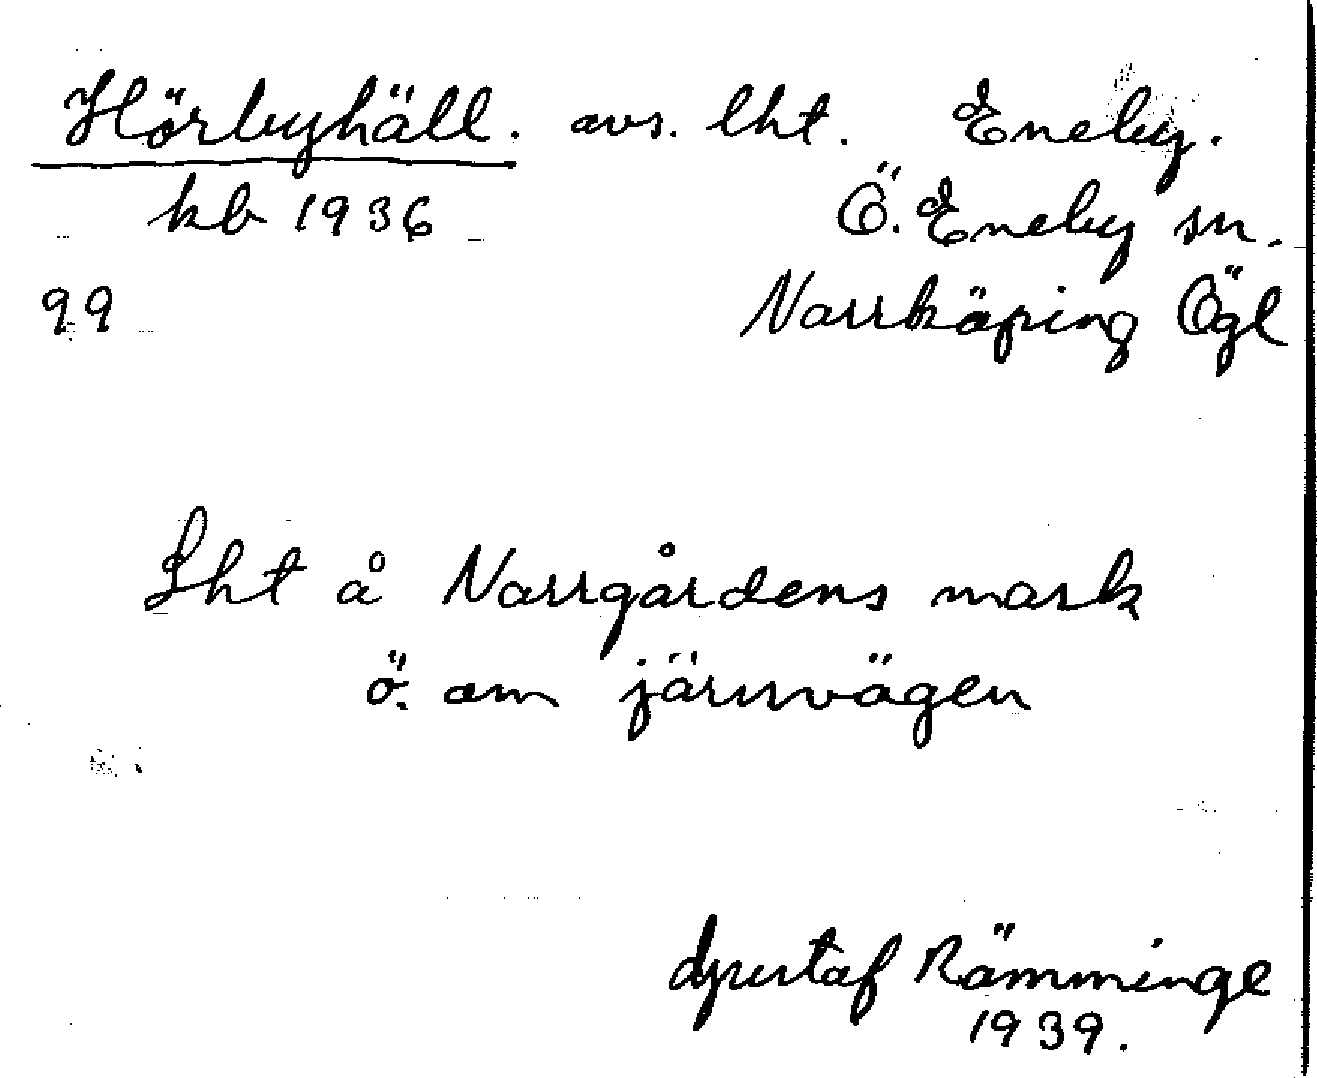 Hörbyhäll. avs. lht. Eneby.
kb 1936 Ö. Eneby sn.
99 Norrköping Ögl
Lht å Norrgårdens mark
ö. om järnvägen
Gustaf Rämminge
1939.